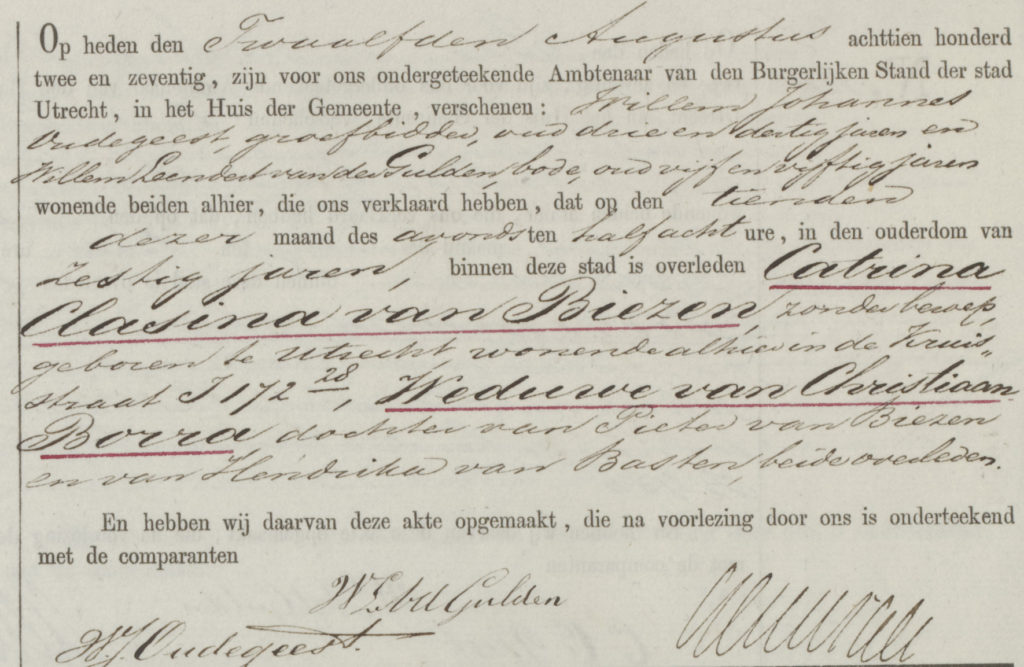 Op heden den Twaalfden Augustus achttien honderd
twee en zeventig, zijn voor ons ondergeteekende Ambtenaar van den Burgerlijken Stand der stad
Utrecht, in het Huis der Gemeente, verschenen: Willem Johannes
Oudegeest, groefbidder, oud drie en dertig jaren en
Willem Leendert van der Gulden, bode, oud vijf en vyftig jaren
wonende beiden alhier, die ons verklaard hebben, dat op den tienden
dezer maand des avonds ten half acht ure, in den ouderdom van
zestig jaren, binnen deze stad is overleden Catrina
Clasina van Biezen, zonder beroep,
geboren te Utrecht, wonende alhier in de Kruis„
straat I 172 28, Weduwe van Christiaan
Borra dochter van Pieter van Biezen
en van Hendrika van Basten, beide overleden.
En hebben wij daarvan deze akte opgemaakt, die na voorlezing door ons is onderteekend
met de comparanten
Gulden
W. J. Oudegeest.